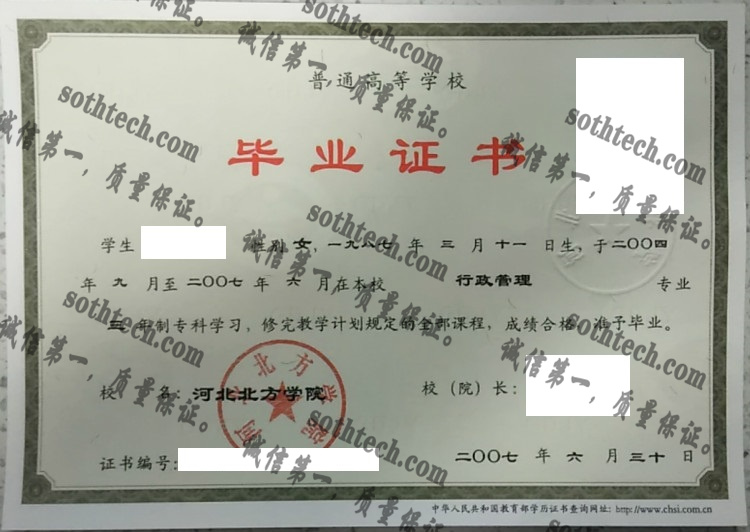 普通高等学校
毕业证书
学生 性别 女，一九八七 年 三 月 十一 日生，于二〇〇四
年 九 月至 二〇〇七 年 六 月在本校 行政管理 专业
三 年制专科学习，修完教学计划规定的全部课程，成绩合格，准予毕业。
校 名：河北北方学院 校（院）长：
河北北方学院
证书编号： 二〇〇七 年 六 月 三十 日
中华人民共和国教育部学历证书查询网址：http://www.chsi.com.cn
sothtech.com
诚信第一，质量保证。
sothtech.com
诚信第一，质量保证。
sothtech.com
诚信第一，质量保证。
sothtech.com
诚信第一，质量保证。
sothtech.com
诚信第一，质量保证。
sothtech.com
诚信第一，质量保证。
sothtech.com
诚信第一，质量保证。